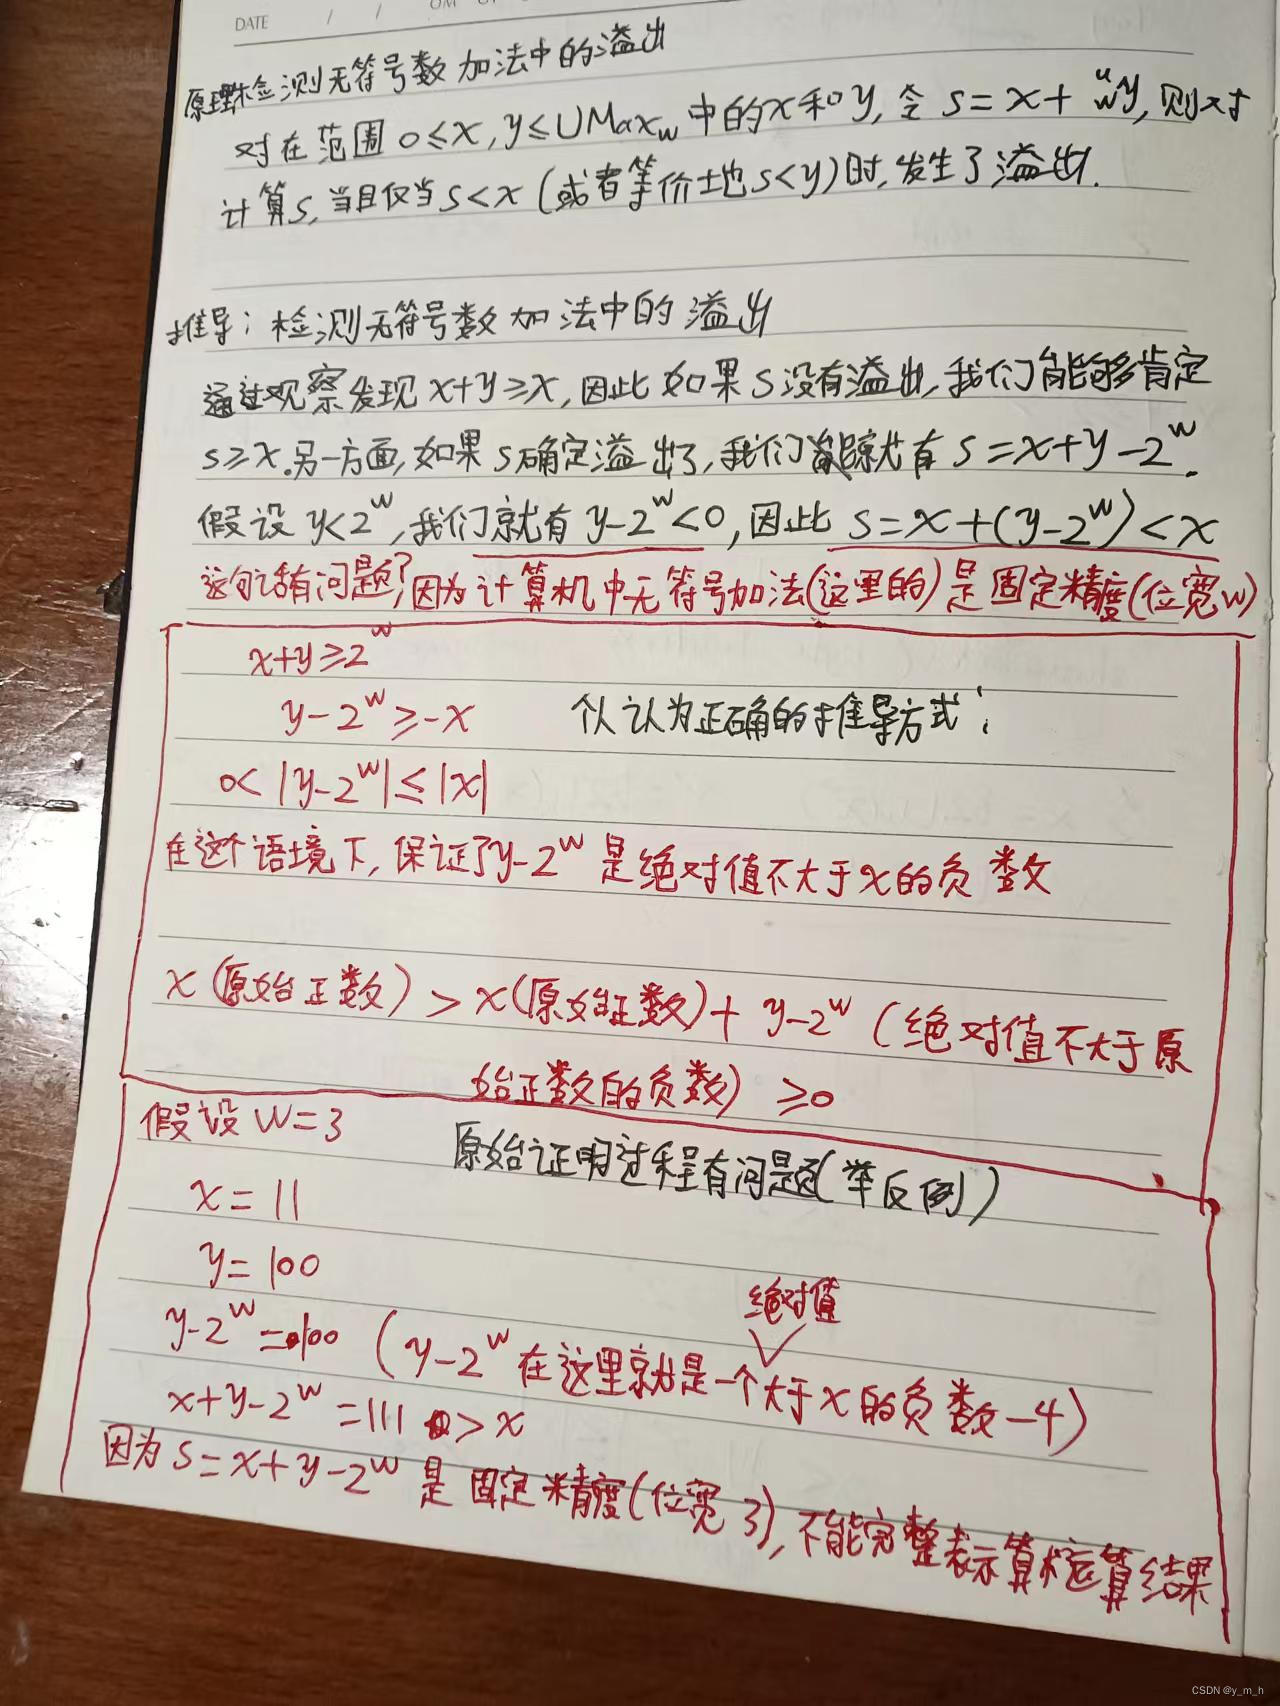 DATE / /
原理:检测无符号数加法中的溢出
对在范围 0≤x,y≤UMaxw 中的x和y,令 s=x+ᵘwy,则对
计算s,当且仅当s<x(或者等价地s<y)时,发生了溢出.
推导:检测无符号数加法中的溢出
通过观察发现 x+y≥x,因此如果s没有溢出,我们能够肯定
s≥x.另一方面,如果s确定溢出了,我们就有 s=x+y-2ʷ.
假设 y<2ʷ,我们就有 y-2ʷ<0,因此 s=x+(y-2ʷ)<x
这句话有问题?因为计算机中无符号加法(这里的)是固定精度(位宽w)
x+y≥2ʷ
y-2ʷ≥-x 个人认为正确的推导方式:
0<|y-2ʷ|≤|x|
在这个语境下,保证了y-2ʷ是绝对值不大于x的负数
x(原始正数)>x(原始正数)+ y-2ʷ(绝对值不大于原
始正数的负数) ≥0
假设 w=3 原始证明过程有问题(举反例)
x=11
y=100
绝对值
y-2ʷ=100 (y-2ʷ在这里就是一个大于x的负数-4)
x+y-2ʷ=111 >x
因为s=x+y-2ʷ是固定精度(位宽3),不能完整表示算术运算结果
CSDN @y_m_h